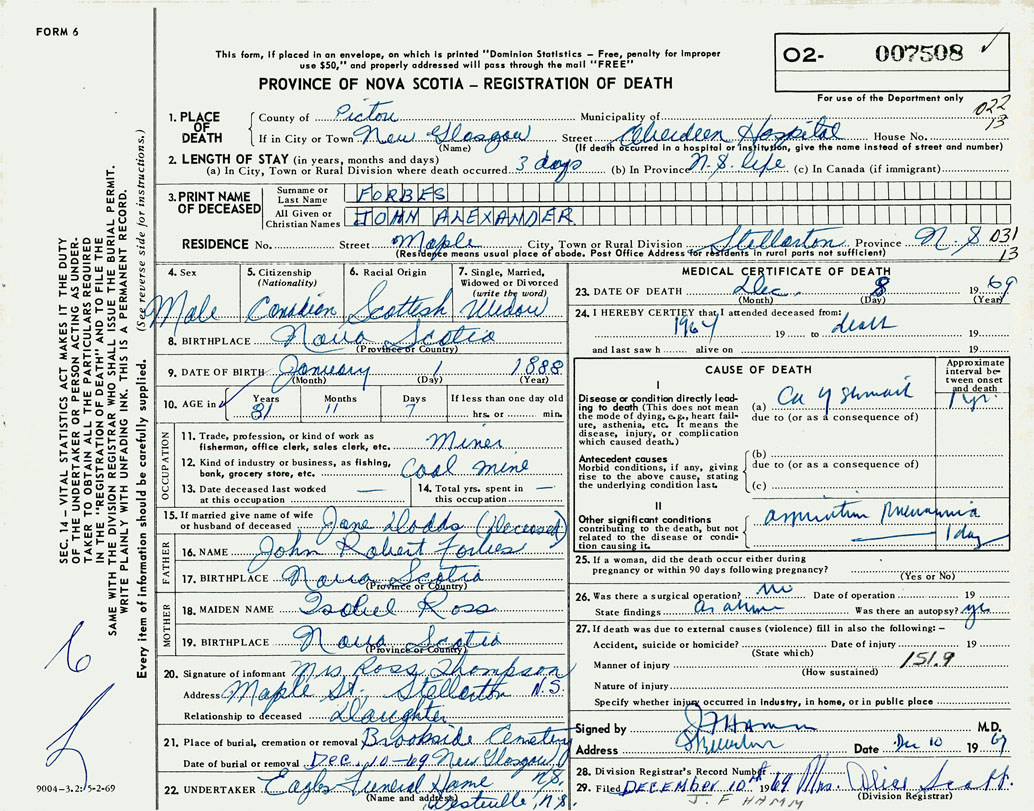 FORM 6
This form, if placed in an envelope, on which is printed "Dominion Statistics – Free, penalty for improper
use $50," and properly addressed will pass through the mail "FREE"
PROVINCE OF NOVA SCOTIA – REGISTRATION OF DEATH
O2- 007508 ✓
For use of the Department only
022
13
1. PLACE OF DEATH
County of Pictou Municipality of
If in City or Town New Glasgow Street Aberdeen Hospital House No.
(Name) (If death occurred in a hospital or institution, give the name instead of street and number)
2. LENGTH OF STAY (in years, months and days)
(a) In City, Town or Rural Division where death occurred 3 days (b) In Province N.S. life (c) In Canada (if immigrant)
3. PRINT NAME OF DECEASED
Surname or Last Name FORBES
All Given or Christian Names JOHN ALEXANDER
RESIDENCE No. Street Maple City, Town or Rural Division Stellarton Province N.S 031
13
(Residence means usual place of abode. Post Office Address for residents in rural parts not sufficient)
4. Sex Male
5. Citizenship (Nationality) Canadian
6. Racial Origin Scottish
7. Single, Married, Widowed or Divorced (write the word) Widow
8. BIRTHPLACE Nova Scotia
(Province or Country)
9. DATE OF BIRTH January 1 1888
(Month) (Day) (Year)
10. AGE in Years 81 Months 11 Days 7 If less than one day old hrs. or min.
OCCUPATION
11. Trade, profession, or kind of work as fisherman, office clerk, sales clerk, etc. Miner
12. Kind of industry or business, as fishing, bank, grocery store, etc. Coal mine
13. Date deceased last worked at this occupation —
14. Total yrs. spent in this occupation —
15. If married give name of wife or husband of deceased Jane Dodds (deceased)
FATHER
16. NAME John Robert Forbes
17. BIRTHPLACE Nova Scotia
(Province or Country)
MOTHER
18. MAIDEN NAME Isobel Ross
19. BIRTHPLACE Nova Scotia
(Province or Country)
20. Signature of informant Mrs Ross Thompson
Address Maple St., Stellarton N.S.
Relationship to deceased Daughter
21. Place of burial, cremation or removal Brookside Cemetery
Date of burial or removal Dec. 10 - 69 New Glasgow, N.S.
22. UNDERTAKER Eagles Funeral Home
(Name and address) Westville, N.S.
MEDICAL CERTIFICATE OF DEATH
23. DATE OF DEATH Dec 8 1969
(Month) (Day) (Year)
24. I HEREBY CERTIFY that I attended deceased from:
1964 19 to death 19
and last saw h alive on 19
CAUSE OF DEATH
Approximate interval between onset and death
I
Disease or condition directly leading to death (This does not mean the mode of dying, e.g., heart failure, asthenia, etc. It means the disease, injury, or complication which caused death.)
(a) Ca of Stomach 1 yr.
due to (or as a consequence of)
Antecedent causes
Morbid conditions, if any, giving rise to the above cause, stating the underlying condition last.
(b)
due to (or as a consequence of)
(c)
II
Other significant conditions contributing to the death, but not related to the disease or condition causing it.
aspiration pneumonia
1 day
25. If a woman, did the death occur either during pregnancy or within 90 days following pregnancy?
(Yes or No)
26. Was there a surgical operation? no Date of operation 19
State findings as above Was there an autopsy? yes
27. If death was due to external causes (violence) fill in also the following: –
Accident, suicide or homicide? Date of injury 19
(State which)
Manner of injury 151.9
(How sustained)
Nature of injury
Specify whether injury occurred in Industry, in home, or in public place
Signed by J F HAMM M.D.
Address Date Dec 10 1969
28. Division Registrar's Record Number
29. Filed DECEMBER 10th 1969 Mrs. Alice Scott
(Division Registrar)
J. F HAMM
SEC. 14 – VITAL STATISTICS ACT MAKES IT THE DUTY
OF THE UNDERTAKER OR PERSON ACTING AS UNDER-
TAKER TO OBTAIN ALL THE PARTICULARS REQUIRED
IN THE "REGISTRATION OF DEATH" AND TO FILE THE
SAME WITH THE DIVISION REGISTRAR WHO SHALL ISSUE THE BURIAL PERMIT.
WRITE PLAINLY WITH UNFADING INK. THIS IS A PERMANENT RECORD.
Every item of information should be carefully supplied. (See reverse side for instructions.)
9004-3.2: 5-2-69